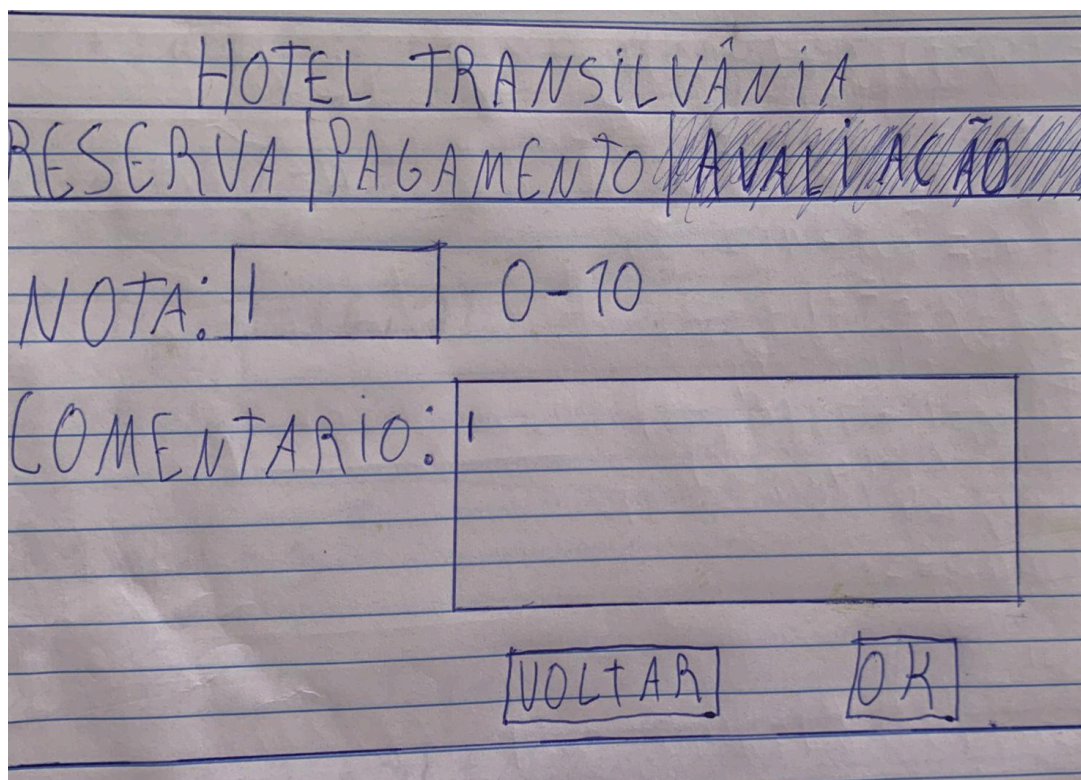 HOTEL TRANSILVÂNIA
RESERVA PAGAMENTO AVALIAÇÃO
NOTA: 0-10
COMENTARIO:
VOLTAR OK